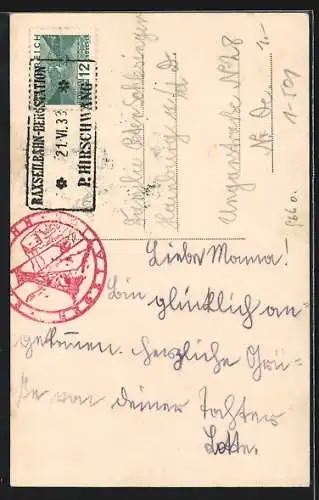 RAXSEILBAHN-BERGSTATION
21.VI.33
P. HIRSCHWANG
12
Familie
Hainburg a/d D.
Ungarstrasse No 28
N. Oe.
1-
Liebe Mama!
Bin glücklich an-
gekommen. Herzliche Grü-
ße von deiner Tochter
Lotte.